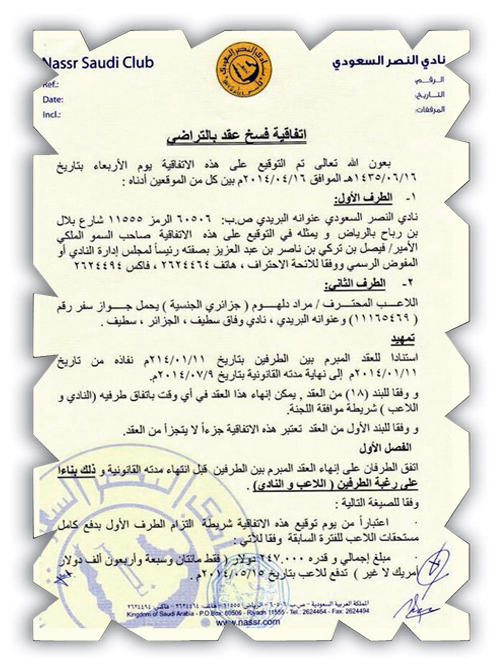 Nassr Saudi Club
نادي النصر السعودي
Ref.:
Date:
Incl.:
الرقم:
التاريخ:
المرفقات:
اتفاقية فسخ عقد بالتراضي
بعون الله تعالى تم التوقيع على هذه الاتفاقية يوم الأربعاء بتاريخ
١٤٣٥/٠٦/١٦هـ الموافق ٢٠١٤/٠٤/١٦م بين كل من الموقعين أدناه :
١- الطرف الأول:
نادي النصر السعودي عنوانه البريدي ص.ب: ٦٠٥٠٦ الرمز ١١٥٥٥ شارع بلال
بن رباح بالرياض و يمثله في التوقيع على هذه الاتفاقية صاحب السمو الملكي
الأمير/ فيصل بن تركي بن ناصر بن عبد العزيز بصفته رئيساً لمجلس إدارة النادي أو
المفوض الرسمي ووفقا للائحة الاحتراف ، هاتف ٢٦٢٤٤٦٤ ، فاكس ٢٦٢٤٤٩٤
٢- الطرف الثاني:
اللاعب المحترف / مراد دلهوم ( جزائري الجنسية ) يحمل جواز سفر رقم
( ١١١٦٥٤٦٩ ) وعنوانه البريدي ، نادي وفاق سطيف ، الجزائر ، سطيف .
تمهيد
استنادا للعقد المبرم بين الطرفين بتاريخ ٢١٤/٠١/١١م نفاذه من تاريخ
٢٠١٤/٠١/١١م إلى نهاية مدته القانونية بتاريخ ٢٠١٤/٠٧/٩م.
و وفقا للبند (١٨) من العقد , يمكن إنهاء هذا العقد في أي وقت باتفاق طرفيه (النادي و
اللاعب ) شريطة موافقة اللجنة.
و وفقا للبند الأول من العقد تعتبر هذه الاتفاقية جزءاً لا يتجزأ من العقد.
الفصل الأول
اتفق الطرفان على إنهاء العقد المبرم بين الطرفين قبل انتهاء مدته القانونية و ذلك بناءا
على رغبة الطرفين ( اللاعب و النادي) .
وفقا للصيغة التالية :
· اعتباراً من يوم توقيع هذه الاتفاقية شريطة التزام الطرف الأول بدفع كامل
مستحقات اللاعب للفترة السابقة وفقا للآتي :
مبلغ إجمالي و قدره ٢٤٧.٠٠٠ دولار ( فقط مائتان وسبعة وأربعون ألف دولار
أمريك لا غير ) تدفع للاعب بتاريخ ٢٠١٤/٠٥/١٥م .
المملكة العربية السعودية - ص.ب ٦٠٥٠٦ - الرياض ١١٥٥٥ - هاتف: ٢٦٢٤٤٦٤ - فاكس: ٢٦٢٤٤٩٤
Kingdom of Saudi Arabia - P.O Box: 60506 - Riyadh 11555 - Tel.: 2624464 - Fax: 2624494
www.nassr.com